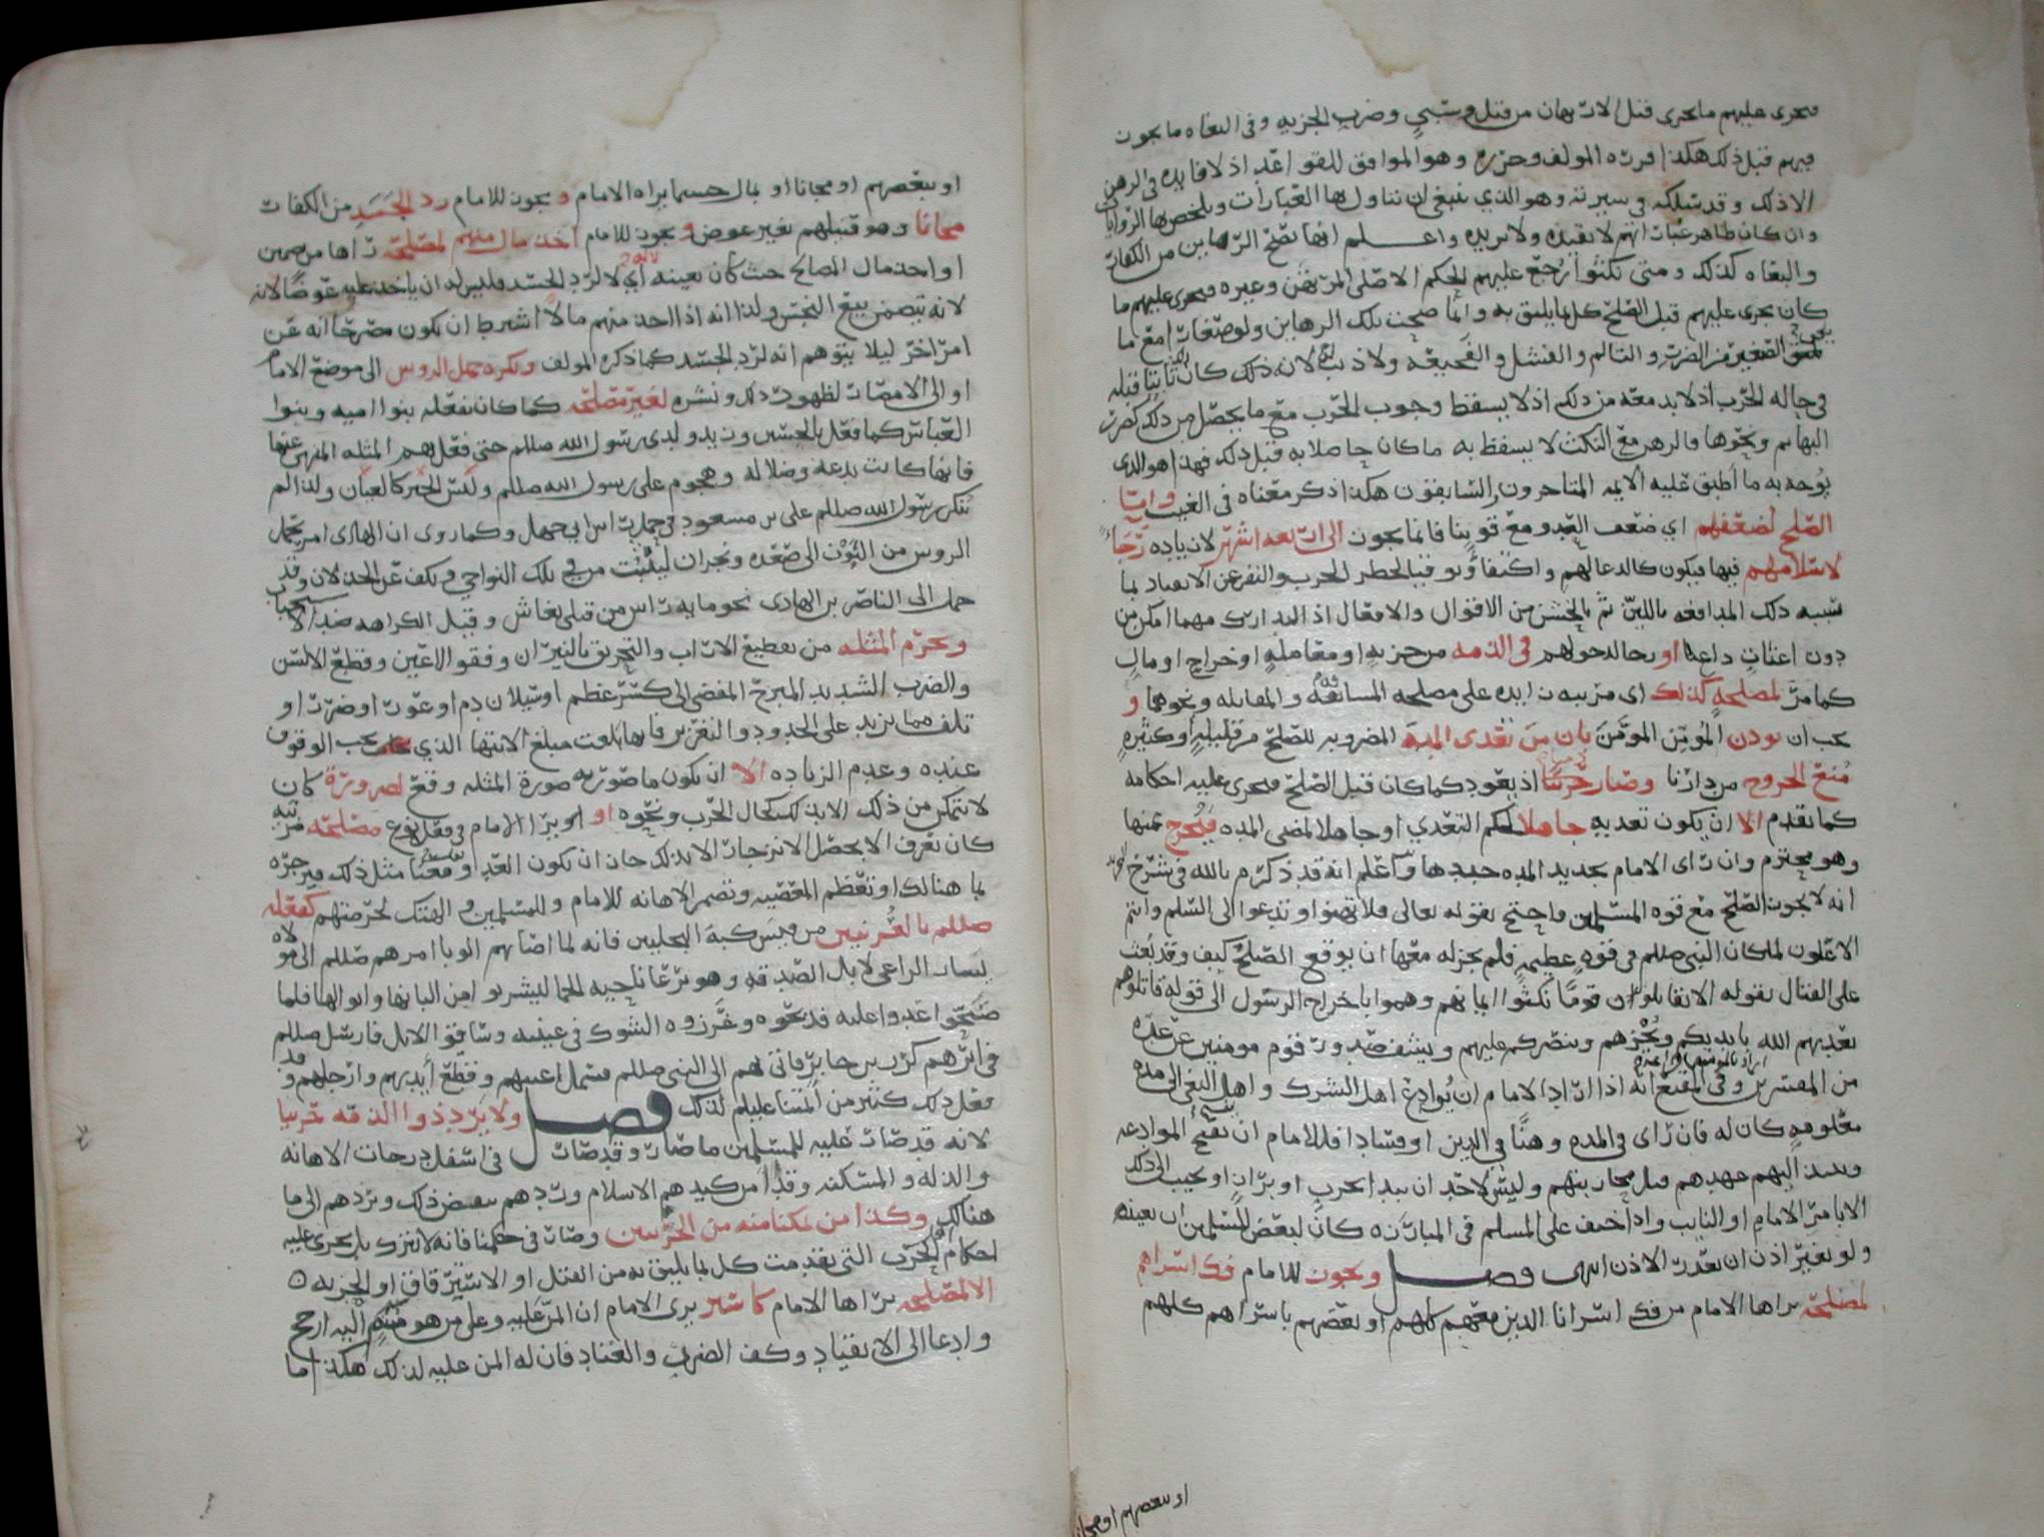 فيجرى عليهم ما يجرى قبل الارتهان من قتل وسبي وضرب الجزيه وفى البغاه ما يجوز
فيهم قبل ذلك هكذا قرره المولف وحرره وهو الموافق للقواعد اذ لا فايده فى الرهن
الا ذلك وقد سلكه في سيرته وهو الذي ينبغي ان تناول بها العبارات ويلخص بها الروايات
وان كان ظاهر عبارتهم لا تفيده ولا تريده واعلم انها تصلح الرهاين من الكفار
والبغاه كذلك ومتى نكثوا رجع عليهم الحكم الاصلى المرتهن وغيره فيجرى عليهم ما
كان يجرى عليهم قبل الصلح كل بما يليق به وانما صحت تلك الرهاين ولو صغارا مع ما
يلحق الصغير من الضرر والتالم والفشل والفجيعه ولا ذنب له لان ذلك كان ثابتا قبله
في حاله الحرب اذ لا بد معه من ذلك اذ لا يسقط وجوب الحرب مع ما يحصل من ذلك كضرب
البهايم ونحوها فالرهن مع النكث لا يسقط به ما كان حاصلا به قبل ذلك فهذا هو الذي
يوجه به ما اطبق عليه الايمه المتاخرون والسابقون هكذا ذكر معناه فى الغيث واما
الصلح لضعفهم اي ضعف العدو مع قوتنا فانما يجوز الى اربعه اشهر لا زياده رجا
لاسلامهم فيها فيكون كالدعا لهم واكتفا وتوقيا لخطر الحرب والنفر عن الانقياد بما
سببه ذلك المدافعه باللين ثم بالخشن من الاقوال والافعال اذ التدارك مهما امكن من
دون اعنات داعيا او رجا لدخولهم فى الذمه من جزيه او معامله او خراج او مال
كما مر لمصلحه كذلك اى مرتبه زايده على مصلحه المسابقه والمقابله ونحوها و
يجب ان يوذن المومن المومن بان من تعدى المده المضروبه للصلح من قليله او كثيره
منع الخروج من دارنا وصار حربيا اذ يعود كما كان قبل الصلح فيجرى عليه احكامه
كما تقدم الا ان يكون تعديه جاهلا لحكم التعدي او جاهلا لمضى المده فيخرج عنها
وهو محترم وان راى الامام تجديد المده جددها واعلم انه قد ذكر م بالله في شرح
انه لا يجوز الصلح مع قوه المسلمين واحتج بقوله تعالى فلا تهنوا وتدعوا الى السلم وانتم
الاعلون لما كان النبى صللم في قوه عظيمه فلم يجز له معها ان يوقع الصلح كيف وقد بعث
على القتال بقوله الا تقاتلون قوما نكثوا ايمانهم وهموا باخراج الرسول الى قوله قاتلوهم
يعذبهم الله بايديكم ويخزهم وينصركم عليهم ويشف صدور قوم مومنين عن عده
من المفسرين وفى المقنع انه اذا اراد الامام ان يوادع اهل الشرك واهل البغى الى مده
معلومه كان له فان راى فى المده وهنا في الدين او فسادا فللامام ان يفسخ الموادعه
وينبذ اليهم عهدهم قبل محاربتهم وليس لاحد ان يبدا بحرب او براز او يجيب الى ذلك
الا بامر الامام او النايب واذا خيف على المسلم فى المبارزه كان لبعض المسلمين ان يعينه
ولو بغير اذن ان تعذر الاذن انتهى فصل ويجوز للامام فك اسراهم
لمصلحه يراها الامام من فك اسرانا الذين معهم كلهم او بعضهم باسراهم كلهم
او ببعضهم او مجانا
او ببعضهم او مجانا او بمال حسبما يراه الامام ويجوز للامام رد الجسد من الكفار
مجانا وهو قتيلهم بغير عوض ويجوز للامام اخذ مال منهم لمصلحه راها من
او اخذ مال المصالح حيث كان بعينه اي لا لرد الجسد فليس له ان ياخذ عليه عوضا لانه
لانه يتضمن بيع النجس ولذا انه اذا اخذ منهم مالا اشترط ان يكون مصرحا انه عن
امر اخر ليلا يتوهم انه لرد الجسد كما ذكره المولف ويكره حمل الروس الى موضع الامام
او الى الامصار لظهور ذلك ونشره لغير مصلحه كما كان يفعله بنوا اميه وبنوا
العباس كما فعل بالحسين وزيد ولدى رسول الله صللم حتى فعل بهم المثله المنهى عنها
فانها كانت بدعه وضلاله وهجوم على رسول الله صللم وليس الخبر كالعيان ولذا لم
ينكر رسول الله صللم على بن مسعود في حمل راس ابى جهل وكما روى ان الهادى امر بحمل
الروس من البون الى صعده ونجران ليتثبت من في تلك النواحي ويكف عن الخذلان وقد
حمل الى الناصر بن الهادى نحو مايه راس من قتلى نغاش وقيل الكراهه ضد الاستحباب
ويحرم المثله من تقطيع الاراب والتحريق بالنيران وفقو الاعين وقطع الالسن
والضرب الشديد المبرح المفضى الى كسر عظم او سيلان دم او عور او ضرر او
تلف مما يزيد على الحدود والتعزير فانها بلغت مبلغ الانتها الذي يجب الوقوف
عنده وعدم الزياده الا ان يكون ما صورته صورة المثله وقع لضرورة كان
لا يتمكن من ذلك الا بذلك كحال الحرب ونحوه او يرا الامام في فعل نوع مصلحه مرتبه
كان يعرف الا يحصل الانزجار الا بذلك جاز ان يكون العدو فعل معنا مثل ذلك فيزجره
بما هنالك او تعظم المعصيه وتضمر الاهانه للامام وللمسلمين والهتك لحرمتهم كفعله
صللم بالعرنيين من قيس كبة البجليين فانه لما اصابهم الوبا امرهم صللم الى مولاه
يسار الراعي لابل الصدقه وهو يرعا ناحيه الحما ليشربوا من البانها وابوالها فلما
صحوا غدوا عليه فذبحوه وغرزوه الشوك في عينيه وساقوا الابل فارسل صللم
فى اثرهم كرز بن جابر فاتى بهم الى النبى صللم فسمل اعينهم وقطع ايديهم وارجلهم وقد
فعل ذلك كثير من ائمتنا عليلم لذلك فصل ولا يرد ذوا الذمه حربيا
لانه قد صار عليه للمسلمين ما صار وقد صار في اسفل درجات الاهانه
والذله والمسكنه وقد امر كيدهم الاسلام وردهم ببعض ذلك ونردهم الى ما
هنالك وكذا من تمكنا منه من الحربيين وصار في حكمنا فانه لا يترك بل يجرى عليه
احكام الحرب التى تقدمت كل بما يليق به من القتل او الاسترقاق او الجزيه ٥
الا لمصلحه يراها الامام كاشهر يرى الامام ان المن عليه وعلى من هو منتم اليه ارجح
وادعا الى الانقياد وكف الضرر والعناد فان له المن عليه لذلك هكذا اما